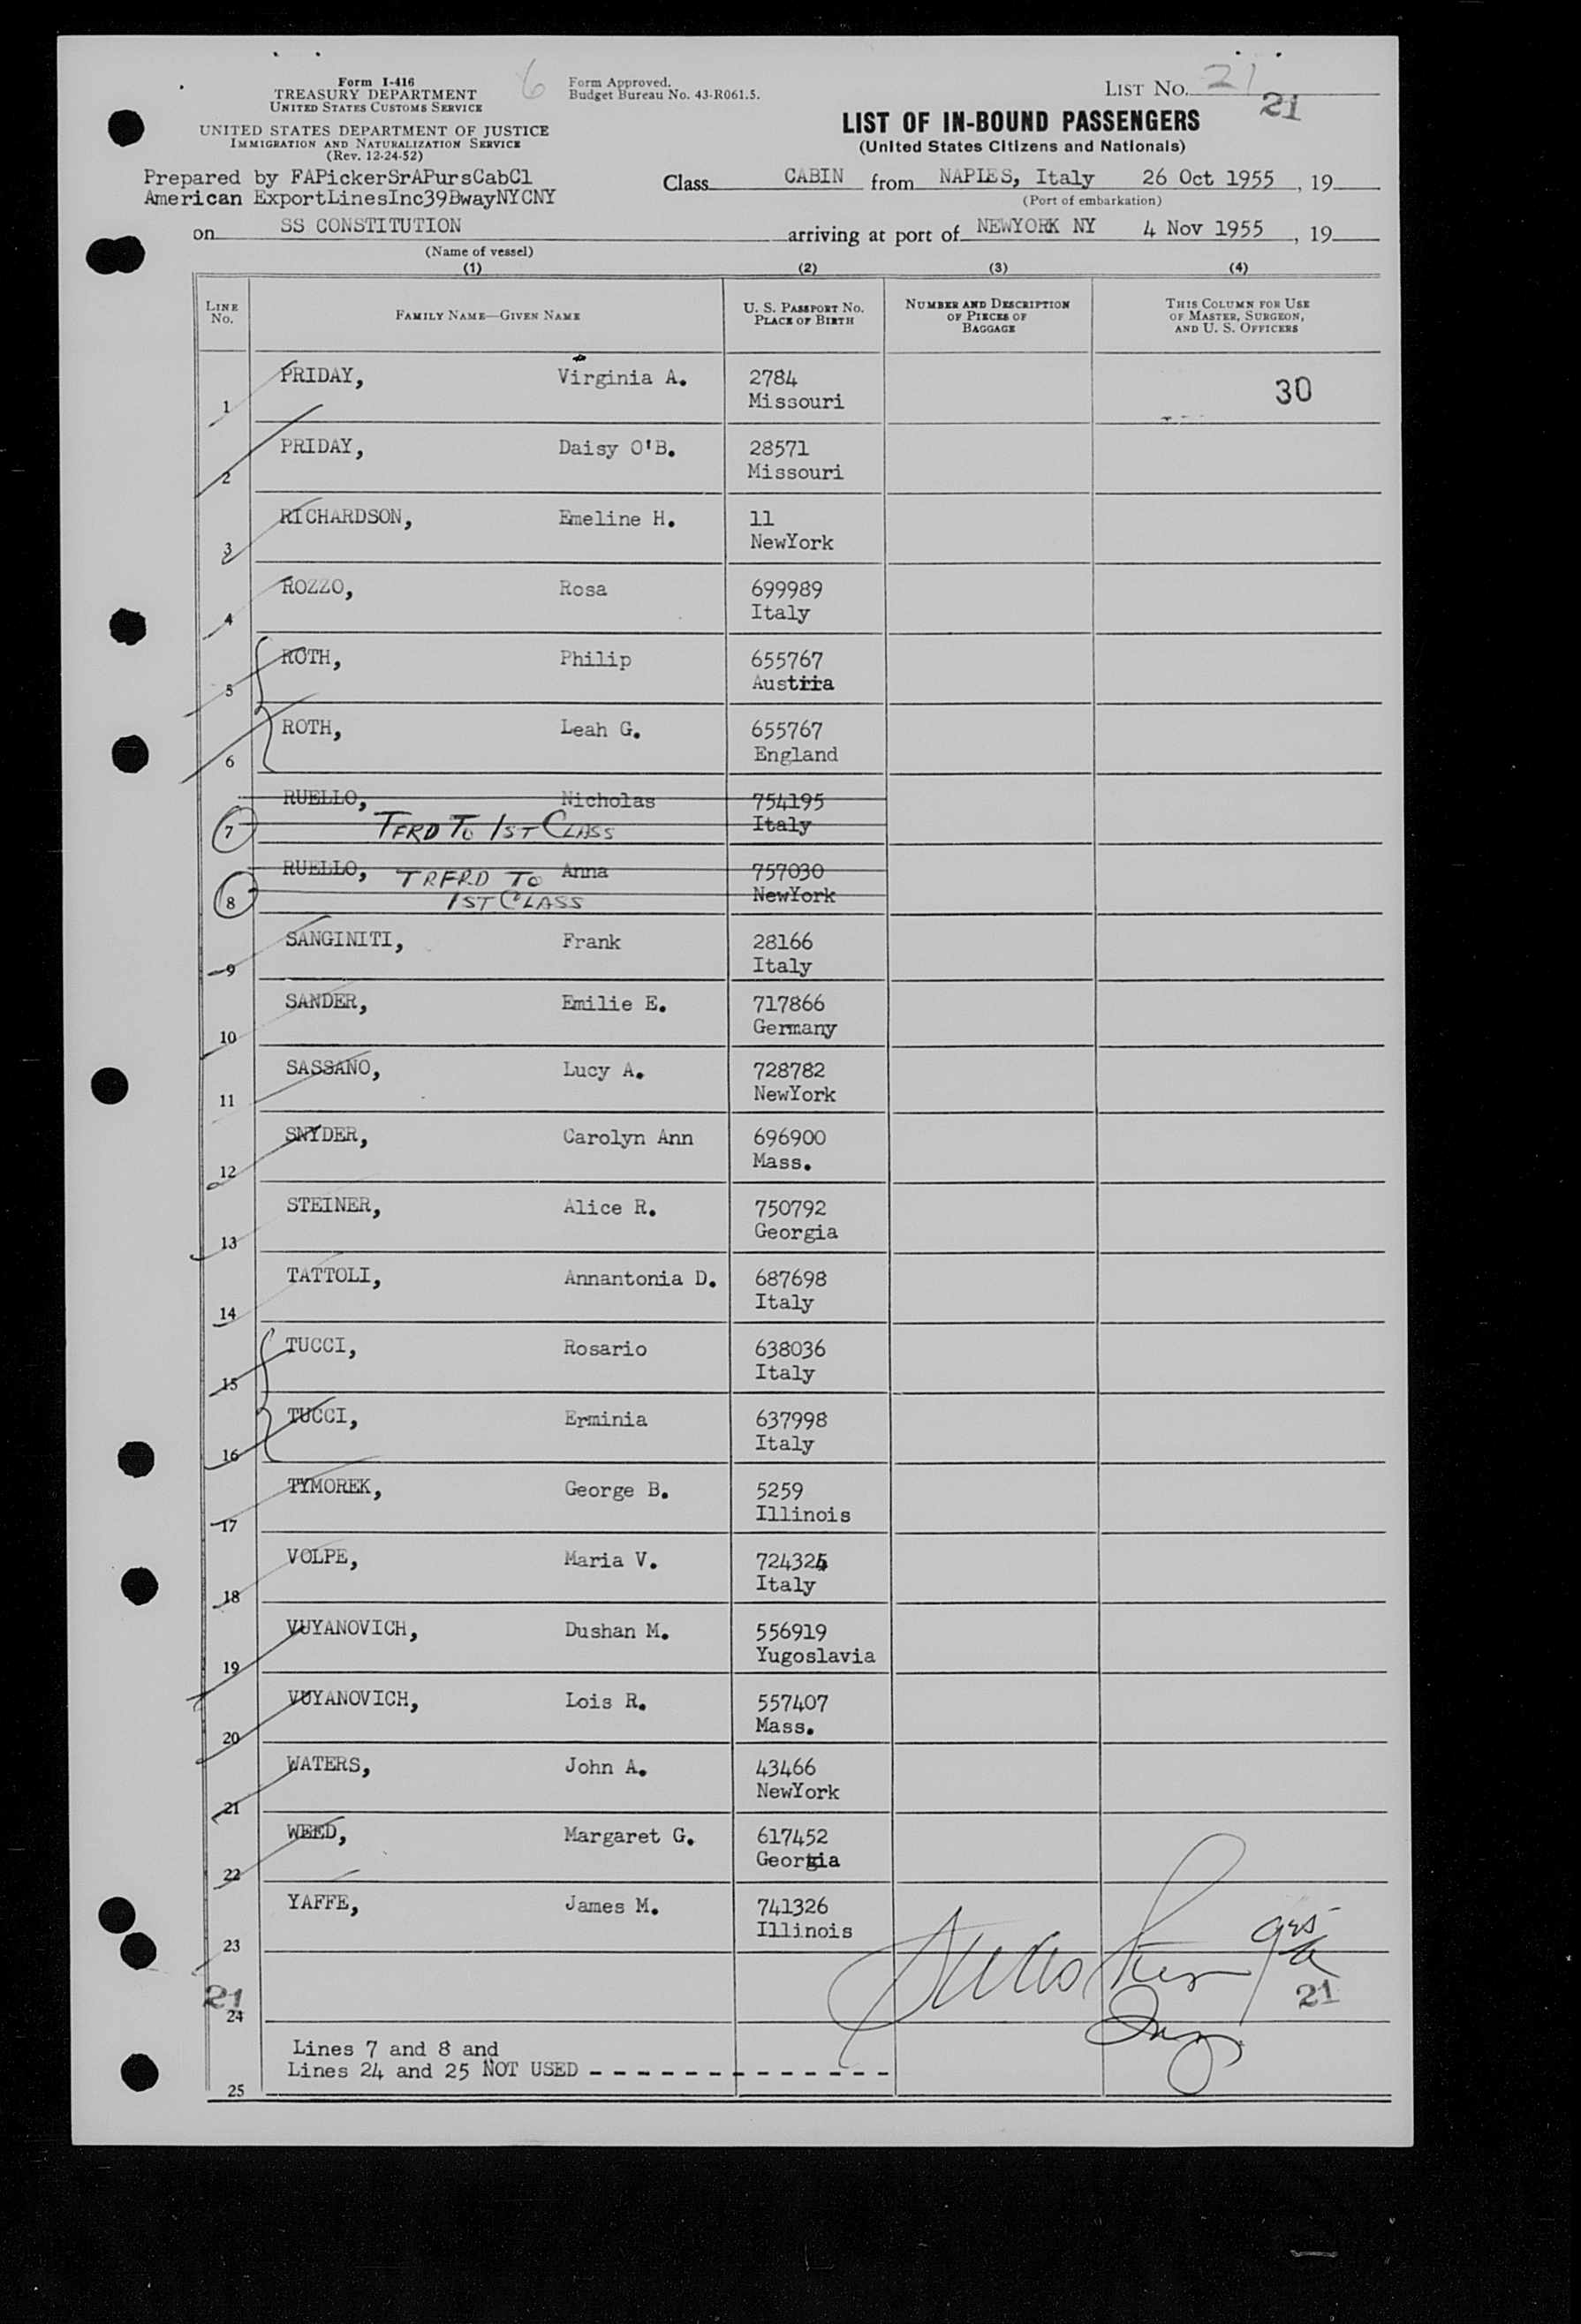 Form I-416
TREASURY DEPARTMENT
UNITED STATES CUSTOMS SERVICE
6
Form Approved.
Budget Bureau No. 43-R061.5.
LIST NO. 21
21
UNITED STATES DEPARTMENT OF JUSTICE
IMMIGRATION AND NATURALIZATION SERVICE
(Rev. 12-24-52)
LIST OF IN-BOUND PASSENGERS
(United States Citizens and Nationals)
Prepared by FAPickerSrAPursCabCl
American ExportLinesInc39BwayNYCNY
Class CABIN from NAPLES, Italy 26 Oct 1955, 19
(Port of embarkation)
on SS CONSTITUTION arriving at port of NEWYORK NY 4 Nov 1955, 19
(Name of vessel)
(1) (2) (3) (4)
LINE No. FAMILY NAME—GIVEN NAME U. S. PASSPORT NO. PLACE OF BIRTH NUMBER AND DESCRIPTION OF PIECES OF BAGGAGE THIS COLUMN FOR USE OF MASTER, SURGEON, AND U. S. OFFICERS
PRIDAY, Virginia A. 2784
1 Missouri 30
PRIDAY, Daisy O'B. 28571
2 Missouri
RICHARDSON, Emeline H. 11
3 NewYork
ROZZO, Rosa 699989
4 Italy
ROTH, Philip 655767
5 Austria
ROTH, Leah G. 655767
6 England
RUELLO, Nicholas 754195
7 TFRD TO 1ST CLASS Italy
RUELLO, TRFRD TO Anna 757030
8 1ST CLASS NewYork
SANGINITI, Frank 28166
9 Italy
SANDER, Emilie E. 717866
10 Germany
SASSANO, Lucy A. 728782
11 NewYork
SNYDER, Carolyn Ann 696900
12 Mass.
STEINER, Alice R. 750792
13 Georgia
TATTOLI, Annantonia D. 687698
14 Italy
TUCCI, Rosario 638036
15 Italy
TUCCI, Erminia 637998
16 Italy
TYMOREK, George B. 5259
17 Illinois
VOLPE, Maria V.
18 Italy
VUYANOVICH, Dushan M. 556919
19 Yugoslavia
VUYANOVICH, Lois R. 557407
20 Mass.
WATERS, John A. 43466
21 NewYork
WEED, Margaret G. 617452
22 Georgia
YAFFE, James M. 741326
23 Illinois
21 21
24
Lines 7 and 8 and
Lines 24 and 25 NOT USED - - - - - - - - - - - - -
25